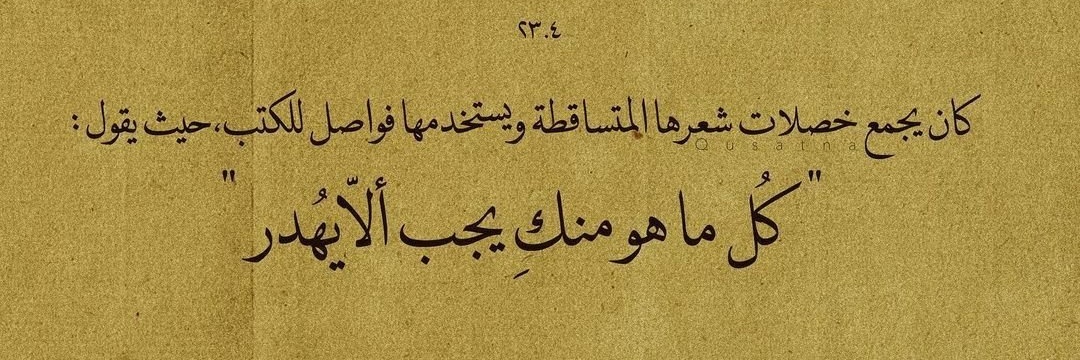 ٢٣.٤
كان يجمع خصلات شعرها المتساقطة ويستخدمها فواصل للكتب، حيث يقول :
Qusatna
" كُل ما هو منكِ يجب ألاّ يهُدر "